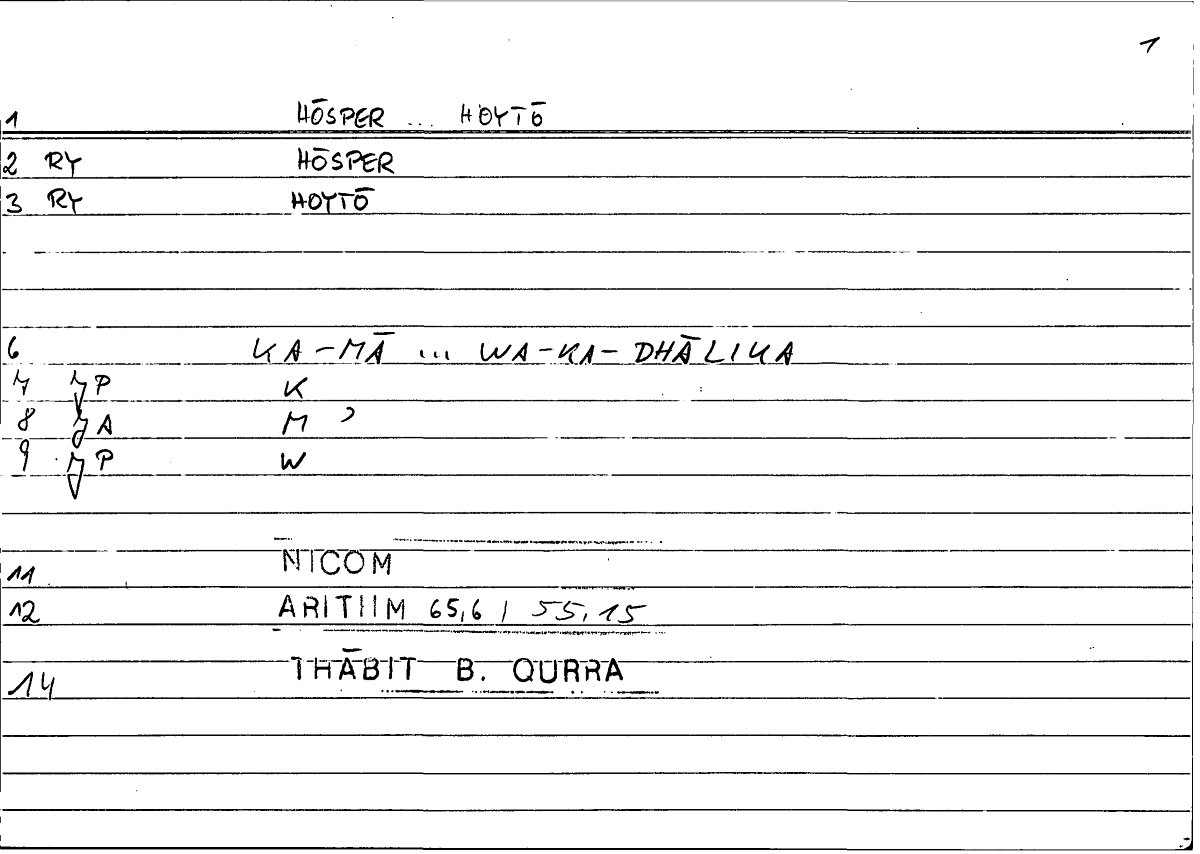 1
1 HŌSPER ... HOYTŌ
2 RY HŌSPER
3 RY HOYTŌ
6 KA-MĀ ... WA-KA-DHĀLIKA
7 P K
8 A M ʾ
9 P W
11 NICOM
12 ARITIIM 65,6 / 55,15
14 THĀBIT B. QURRA